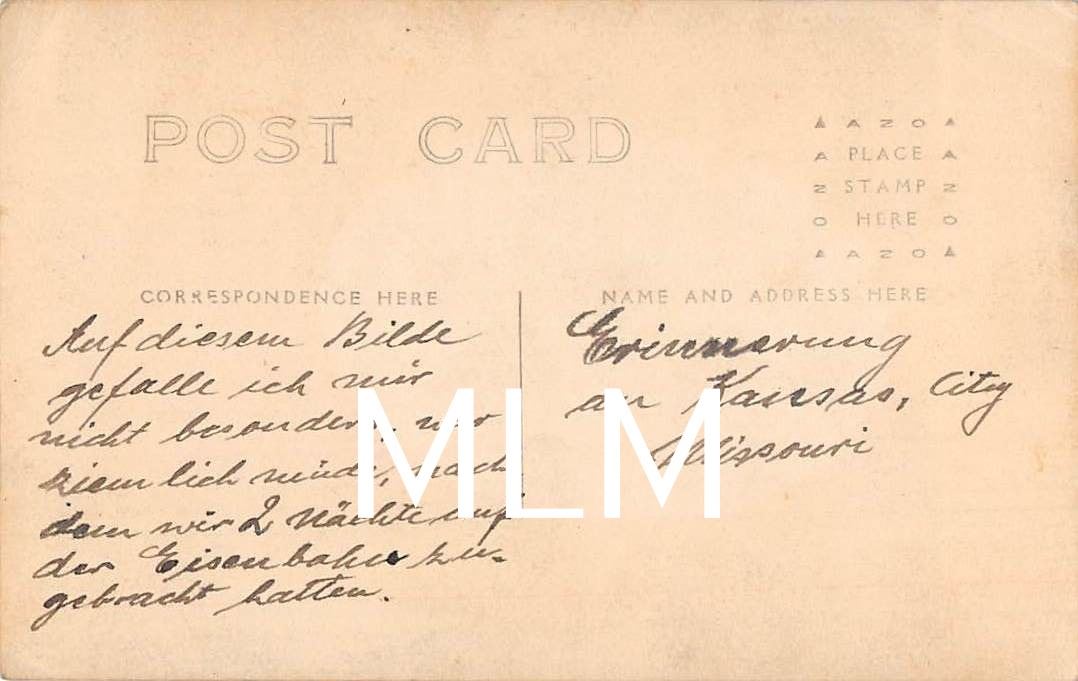 POST CARD
AZO
PLACE
STAMP
HERE
AZO
CORRESPONDENCE HERE
Auf diesem Bilde
gefalle ich mir
nicht besonders, war
ziemlich müde, nach
dem wir 2 Nächte auf
der Eisenbahn zu-
gebracht hatten.
NAME AND ADDRESS HERE
Erinnerung
an Kansas, City
Missouri
MLM